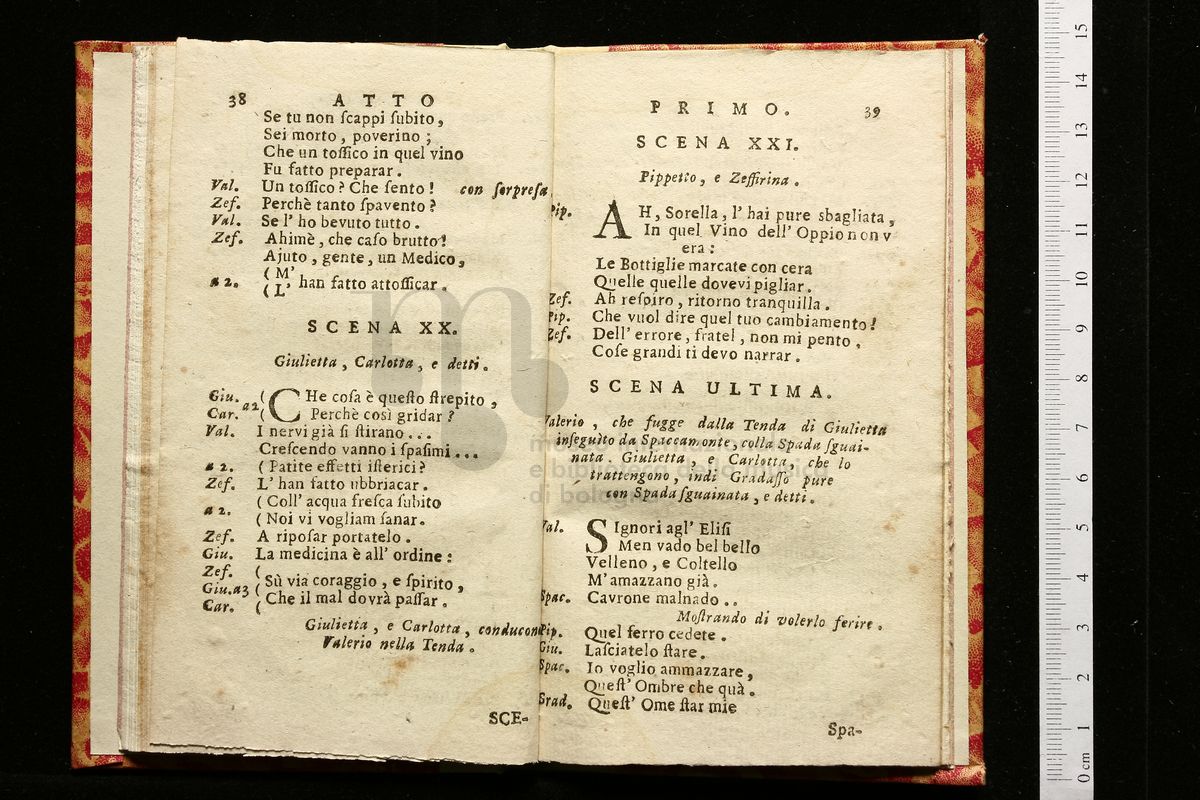 38 ATTO
Se tu non ſcappi ſubito,
Sei morto, poverino;
Che un toſſico in quel vino
Fu fatto preparar.
Val. Un toſſico? Che ſento! con ſorpreſa
Zef. Perchè tanto ſpavento?
Val. Se l' ho bevuto tutto.
Zef. Ahimè, che caſo brutto!
Ajuto, gente, un Medico,
a 2. ( M' ( L' han fatto attoſſicar.
SCENA XX.
Giulietta, Carlotta, e detti.
Giu. ( CHe coſa è queſto ſtrepito,
Car. a2 ( Perchè così gridar?
Val. I nervi già ſi ſtirano...
Creſcendo vanno i ſpaſimi...
a 2. ( Patite effetti iſterici?
Zef. L' han fatto ubbriacar.
a 2. ( Coll' acqua freſca ſubito
( Noi vi vogliam ſanar.
Zef. A ripoſar portatelo.
Giu. La medicina è all' ordine:
Zef. (
Giu. a3 ( Sù via coraggio, e ſpirito,
Car. ( Che il mal dovrà paſſar.
Giulietta, e Carlotta, conducon
Valerio nella Tenda.
SCE-
PRIMO. 39
SCENA XXI.
Pippetto, e Zeffirina.
Pip. AH, Sorella, l' hai pure sbagliata,
In quel Vino dell' Oppio non v
era:
Le Bottiglie marcate con cera
Quelle quelle dovevi pigliar.
Zef. Ah reſpiro, ritorno tranquilla.
Pip. Che vuol dire quel tuo cambiamento!
Zef. Dell' errore, fratel, non mi pento,
Coſe grandi ti devo narrar.
SCENA ULTIMA.
Valerio, che fugge dalla Tenda di Giulietta
inſeguito da Spaccamonte, colla Spada ſguai-
nata. Giulietta, e Carlotta, che lo
trattengono, indi Gradaſſo pure
con Spada ſguainata, e detti.
Val. SIgnori agl' Eliſi
Men vado bel bello
Velleno, e Coltello
M' amazzano già.
Spac. Cavrone malnado..
Moſtrando di volerlo ferire.
Pip. Quel ferro cedete.
Giu. Laſciatelo ſtare.
Spac. Io voglio ammazzare,
Queſt' Ombre che quà.
Grad. Queſt' Ome ſtar mie
Spa-
15
14
13
12
11
10
9
8
7
6
5
4
3
2
1
0 cm